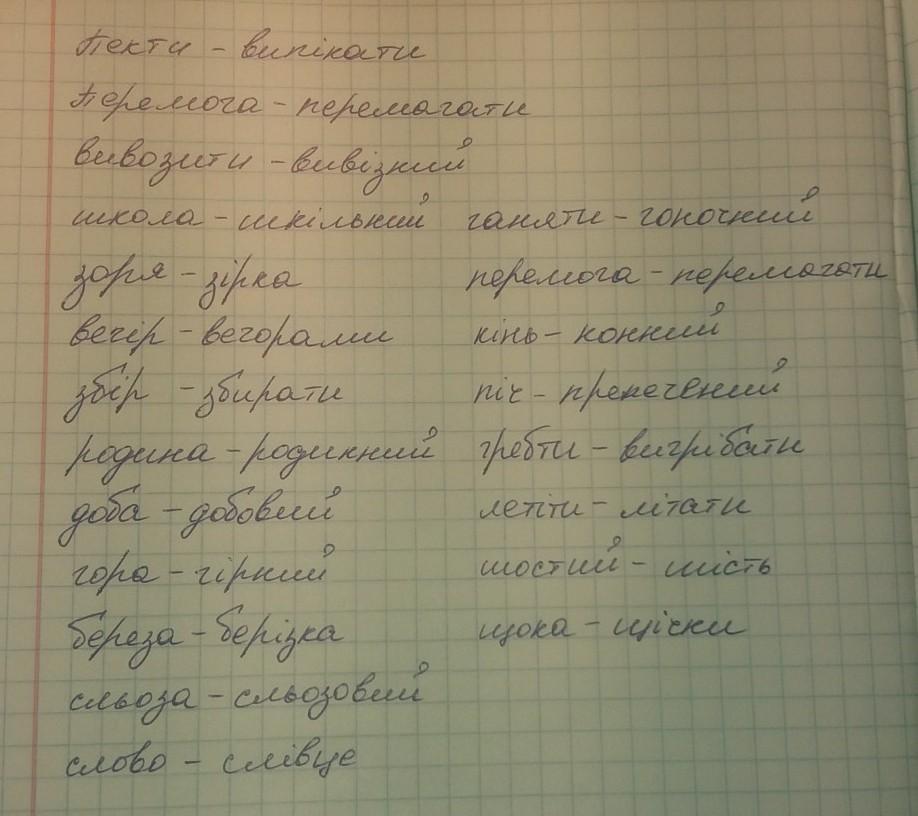 Пекти - випікати
Перемога - перемагати
вивозити - вивізний
школа - шкільний ганяти - гоночний
зоря - зірка перемога - перемагати
вечір - вечорами кінь - конний
збір - збирати піч - препечений
родина - родинний гребти - вигрібати
доба - добовий летіти - літати
гора - гірний шостий - шість
береза - берізка щока - щічки
сльоза - сльозовий
слово - слівце